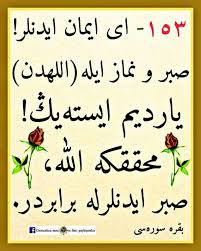 ١٥٣- ای ایمان ایدنلر!
صبر و نماز ایله (اللهدن)
یاردیم ایسته‌یڭ!
محققكه الله،
صبر ایدنلرله برابردر.
بقره سوره‌سی